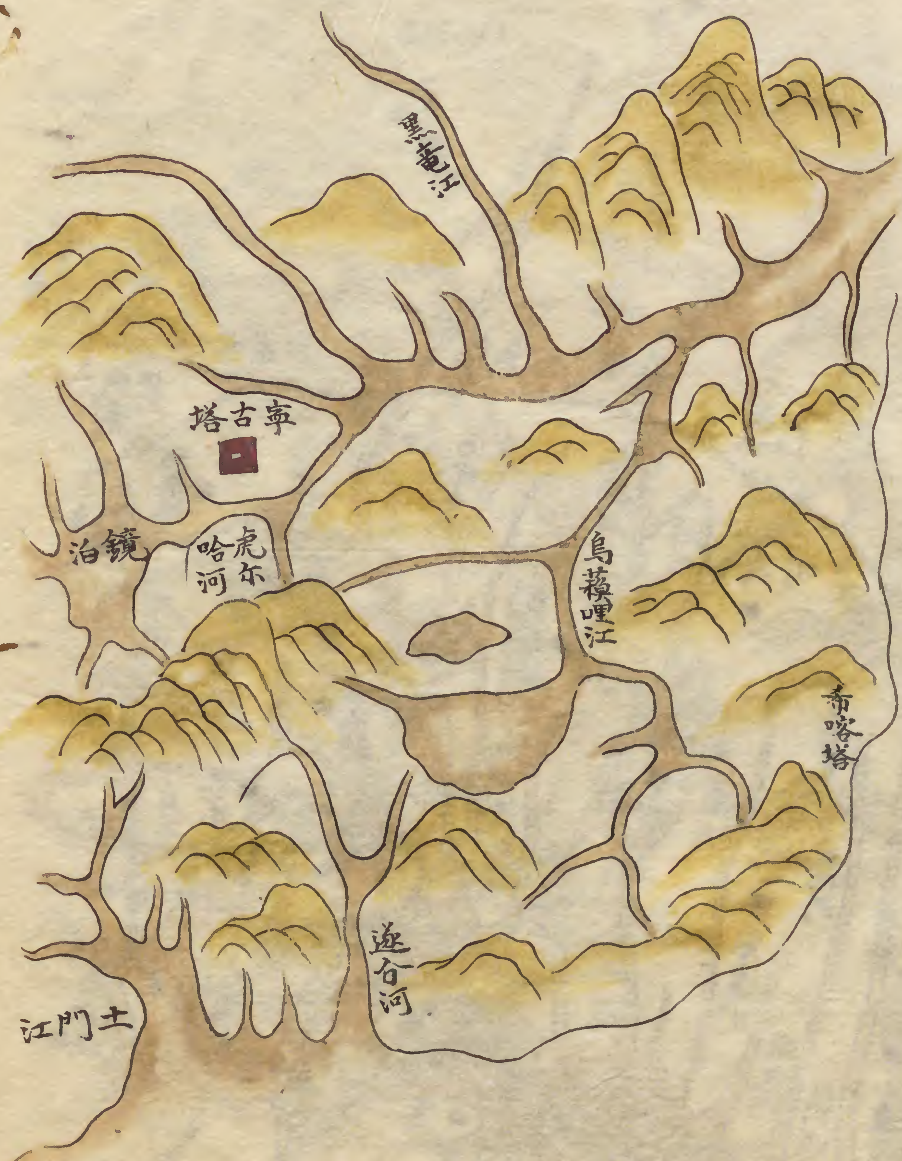 黒竜江
寧古塔
鏡泊
虎尔
哈河
烏蘓哩江
希喀塔
遂合河
土門江